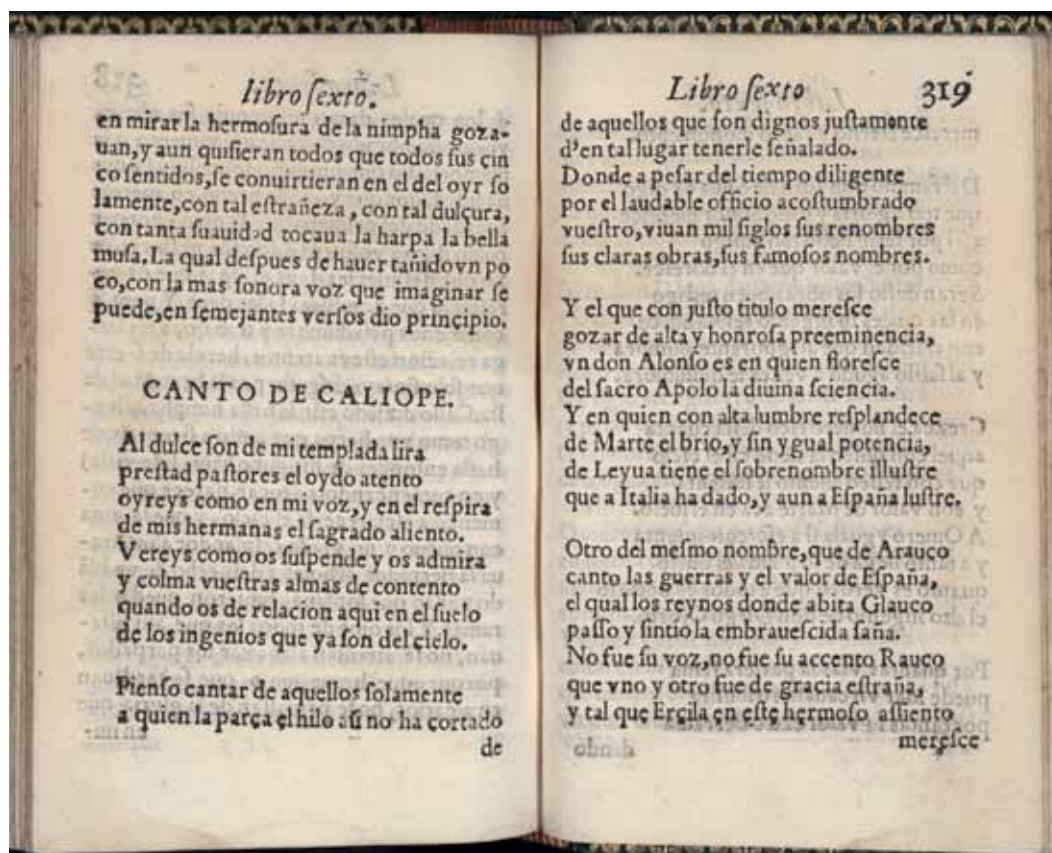 libro ſexto.
en mirar la hermoſura de la nimpha goza-
uan, y aun quiſieran todos que todos ſus çin
co ſentidos, ſe conuirtieran en el del oyr ſo
lamente, con tal eſtrañeza, con tal dulçura,
con tanta ſuauidad tocaua la harpa la bella
muſa. La qual deſpues de hauer tañido vn po
co, con la mas ſonora voz que imaginar ſe
puede, en ſemejantes verſos dio prinçipio.
CANTO DE CALIOPE.
Al dulce ſon de mi templada lira
preſtad paſtores el oydo atento
oyreys como en mi voz, y en el reſpira
de mis hermanas el ſagrado aliento.
Vereys como os ſuſpende y os admira
y colma vueſtras almas de contento
quando os de relacion aqui en el ſuelo
de los ingenios que ya ſon del çielo.
Pienſo cantar de aquellos ſolamente
a quien la parça el hilo aũ no ha cortado
de
Libro ſexto 319
de aquellos que ſon dignos juſtamente
d'en tal lugar tenerle ſeñalado.
Donde a peſar del tiempo diligente
por el laudable officio acoſtumbrado
vueſtro, viuan mil ſiglos ſus renombres
ſus claras obras, ſus famoſos nombres.
Y el que con juſto titulo mereſce
gozar de alta y honroſa preeminencia,
vn don Alonſo es en quien floreſce
del ſacro Apolo la diuina ſciencia.
Y en quien con alta lumbre reſplandece
de Marte el brio, y ſin ygual potencia,
de Leyua tiene el ſobrenombre illuſtre
que a Italia ha dado, y aun a Eſpaña luſtre.
Otro del meſmo nombre, que de Arauco
canto las guerras y el valor de Eſpaña,
el qual los reynos donde abita Glauco
paſſo y ſintio la embraueſcida ſaña.
No fue ſu voz, no fue ſu accento Rauco
que vno y otro fue de gracia eſtraña,
y tal que Erçila en eſte hermoſo aſſiento
mereſce